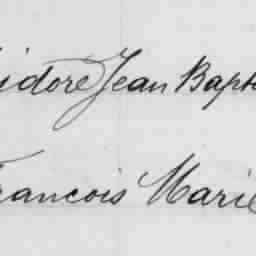 isidore Jean Bapt
Francois Marie